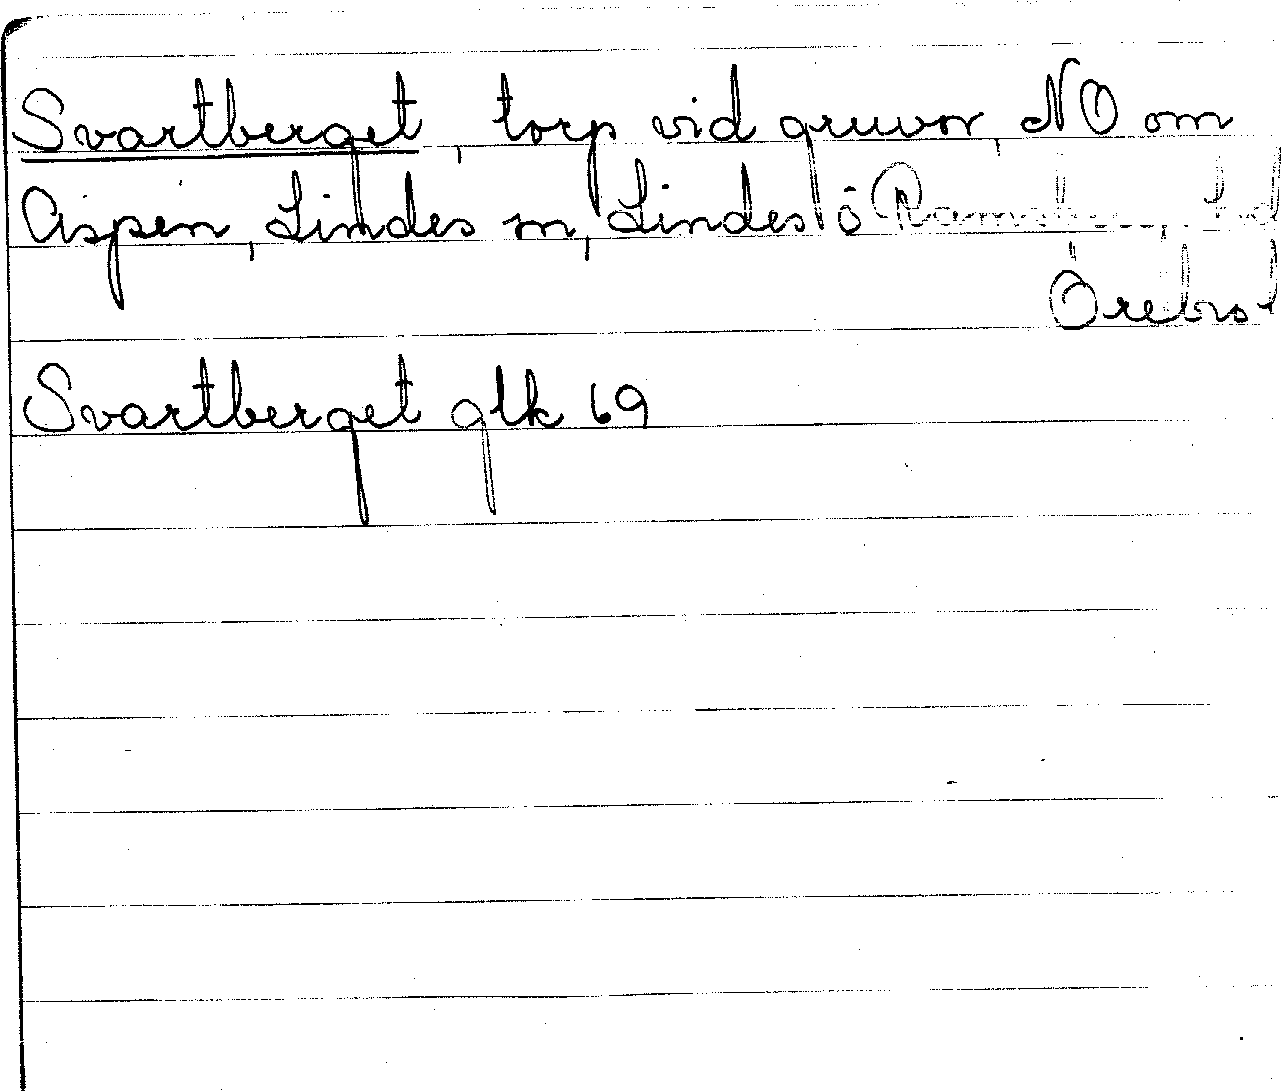 Svartberget, torp vid gruvor, NO om
Aspen, Lindes sn, Lindes o Ramsbergs hd
Örebro l
Svartberget glk 69